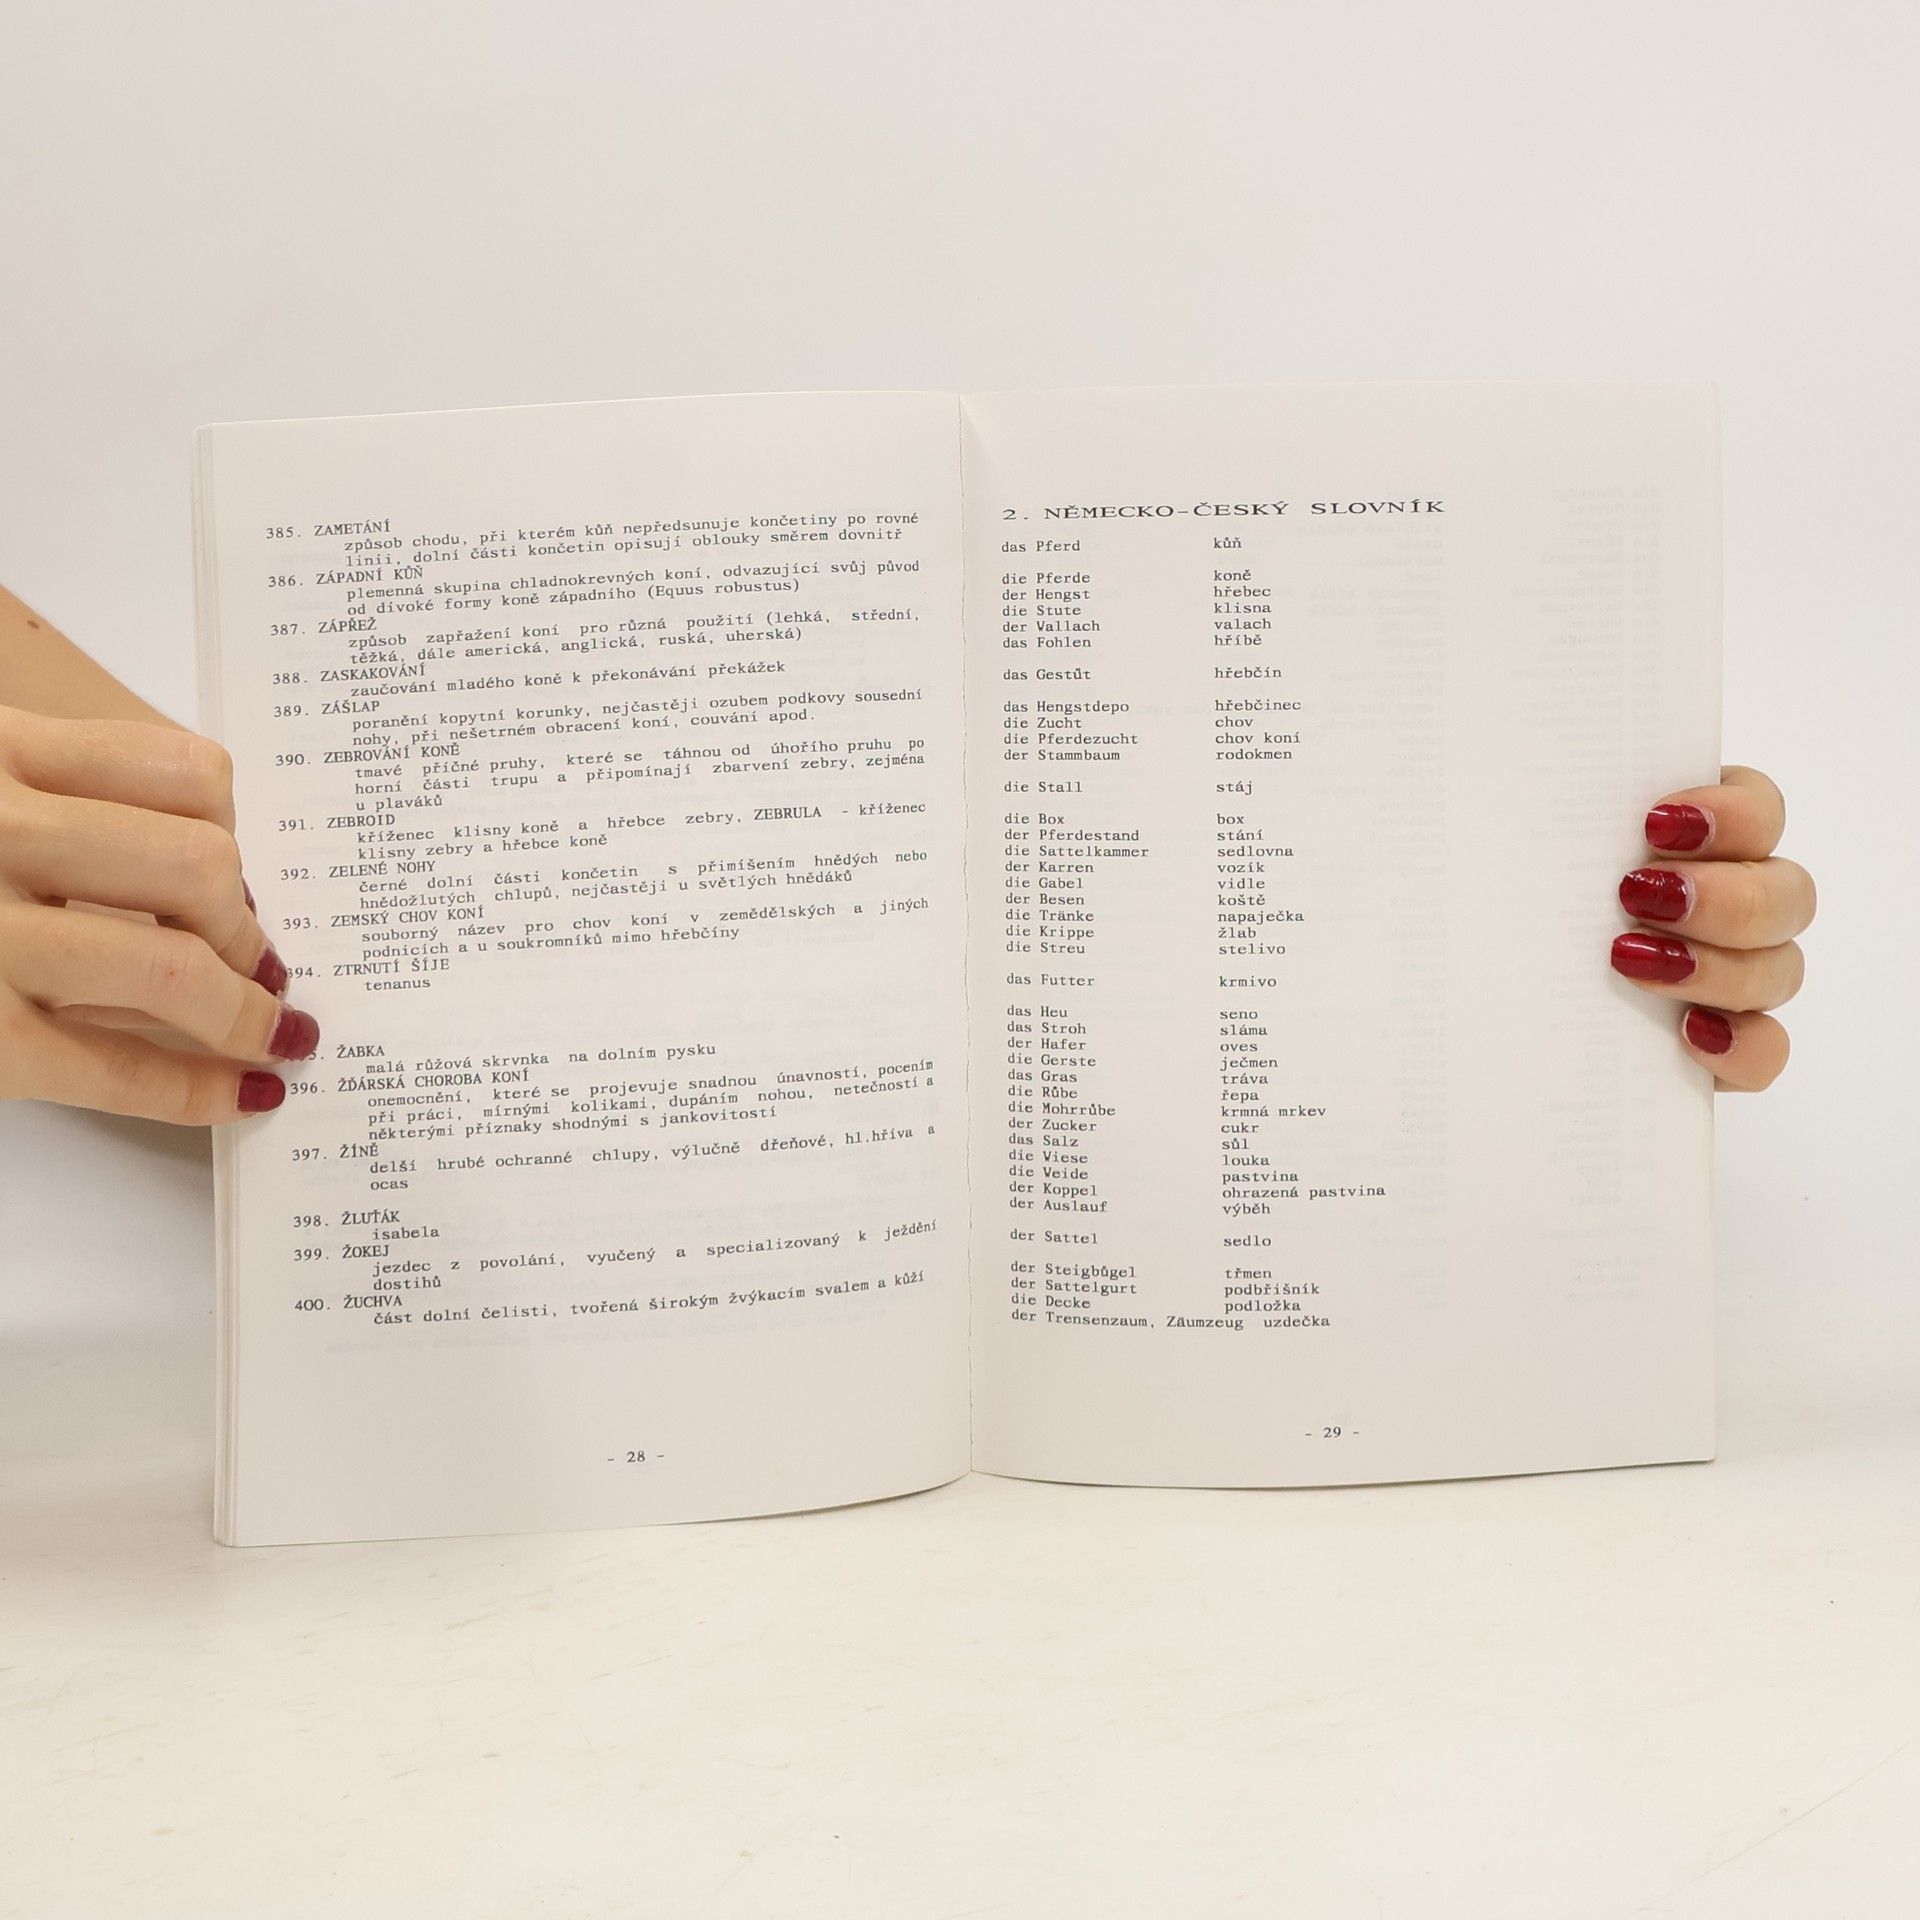 385. ZAMETÁNÍ
způsob chodu, při kterém kůň nepředsunuje končetiny po rovné
linii, dolní části končetin opisují oblouky směrem dovnitř
386. ZÁPADNÍ KŮŇ
plemenná skupina chladnokrevných koní, odvazující svůj původ
od divoké formy koně západního (Equus robustus)
387. ZÁPŘEŽ
způsob zapřažení koní pro různá použití (lehká, střední,
těžká, dále americká, anglická, ruská, uherská)
388. ZASKAKOVÁNÍ
zaučování mladého koně k překonávání překážek
389. ZÁŠLAP
poranění kopytní korunky, nejčastěji ozubem podkovy sousední
nohy, při nešetrném obracení koní, couvání apod.
390. ZEBROVÁNÍ KONĚ
tmavé příčné pruhy, které se táhnou od úhořího pruhu po
horní části trupu a připomínají zbarvení zebry, zejména
u plaváků
391. ZEBROID
kříženec klisny koně a hřebce zebry, ZEBRULA - kříženec
klisny zebry a hřebce koně
392. ZELENÉ NOHY
černé dolní části končetin s přimíšením hnědých nebo
hnědožlutých chlupů, nejčastěji u světlých hnědáků
393. ZEMSKÝ CHOV KONÍ
souborný název pro chov koní v zemědělských a jiných
podnicích a u soukromníků mimo hřebčíny
394. ZTRNUTÍ ŠÍJE
tenanus
ŽABKA
malá růžová skrvnka na dolním pysku
396. ŽĎÁRSKÁ CHOROBA KONÍ
onemocnění, které se projevuje snadnou únavností, pocením
při práci, mírnými kolikami, dupáním nohou, netečností a
některými příznaky shodnými s jankovitostí
397. ŽÍNĚ
delší hrubé ochranné chlupy, výlučně dřeňové, hl.hříva a
ocas
398. ŽLUŤÁK
isabela
399. ŽOKEJ
jezdec z povolání, vyučený a specializovaný k ježdění
dostihů
400. ŽUCHVA
část dolní čelisti, tvořená širokým žvýkacím svalem a kůží
- 28 -
2. NĚMECKO-ČESKÝ SLOVNÍK
das Pferd kůň
die Pferde koně
der Hengst hřebec
die Stute klisna
der Vallach valach
das Fohlen hříbě
das Gestůt hřebčín
das Hengstdepo hřebčinec
die Zucht chov
die Pferdezucht chov koní
der Stammbaum rodokmen
die Stall stáj
die Box box
der Pferdestand stání
die Sattelkammer sedlovna
der Karren vozík
die Gabel vidle
der Besen koště
die Tränke napaječka
die Krippe žlab
die Streu stelivo
das Futter krmivo
das Heu seno
das Stroh sláma
der Hafer oves
die Gerste ječmen
das Gras tráva
die Růbe řepa
die Mohrrůbe krmná mrkev
der Zucker cukr
das Salz sůl
die Wiese louka
die Weide pastvina
der Koppel ohrazená pastvina
der Auslauf výběh
der Sattel sedlo
der Steigbůgel třmen
der Sattelgurt podbřišník
die Decke podložka
der Trensenzaum, Zäumzeug uzdečka
- 29 -